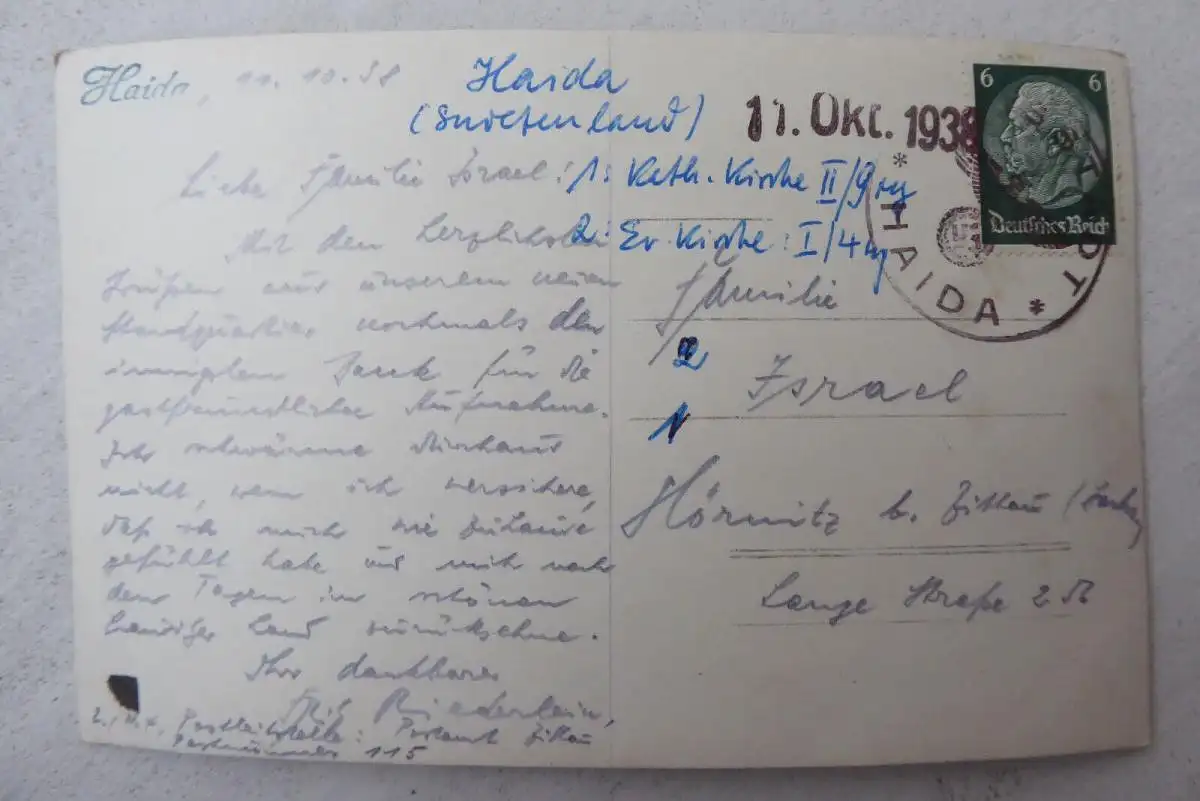 Haida, 11.10.38
Liebe Familie Israel!
Mit den herzlichsten
Grüßen aus unserem neuen
Standquartier nochmals den
innigsten Dank für die
gastfreundliche Aufnahme.
Ich schwärme durchaus
nicht, wenn ich versichere,
daß ich mich wie zuhause
gefühlt habe und mich nach
den Tagen im schönen
Land zurücksehne.
Ihr dankbarer
Riederlein,
Postleitstelle: Postamt Zittau
Postnummer 115
Haida
(Sudetenland)
1: Kath. Kirche II/9
2: Ev. Kirche: I/4
11. Okt. 1938
6 6
Deutsches Reich
* HAIDA *
Familie
2
Israel
1
Hörnitz b. Zittau
Lange Straße 2